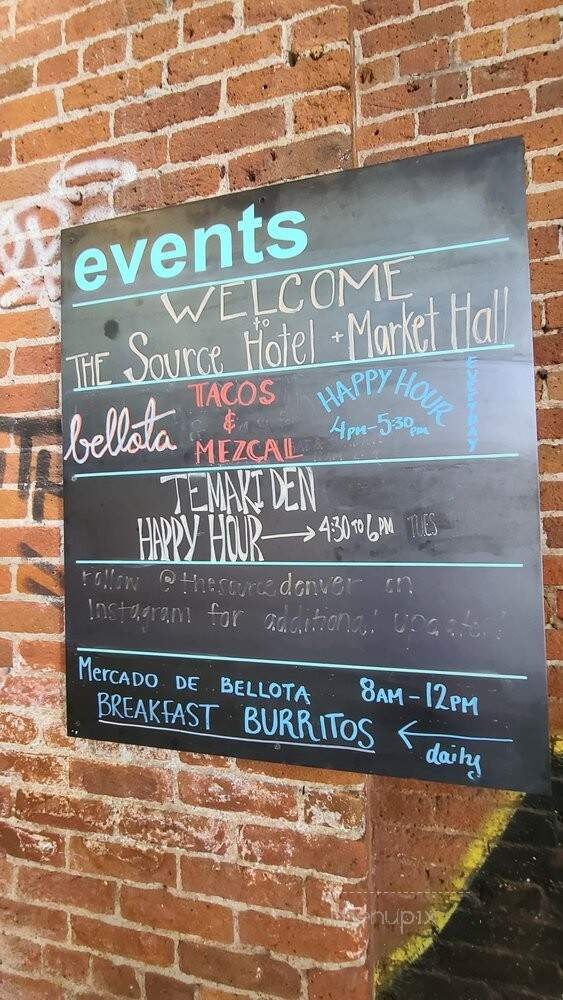 events
WELCOME
to
THE Source Hotel + Market Hall
bellota TACOS & MEZCAL HAPPY HOUR 4PM-5:30PM EVERYDAY
TEMAKI DEN
HAPPY HOUR → 4:30 TO 6PM TUES
Follow @thesourcedenver on
Instagram for additional updates!
MERCADO DE BELLOTA 8AM-12PM
BREAKFAST BURRITOS ←
daily
menupix